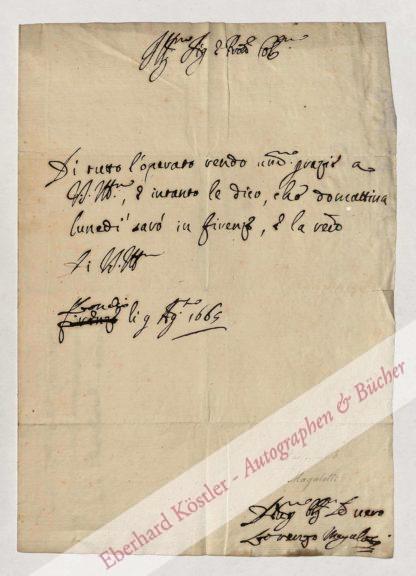 Ill.mo Sig.r e Pron Col.mo
Di tutto l'operato rendo um.me grazie a
V.S. Ill.ma, e intanto le dico, che domattina
lunedi sarò in Firenze, e la rev.o
Di V.S. Ill.ma
li 9 Ag.to 1665
Magalotti
Lorenzo Magalotti
Eberhard Köstler - Autographen & Bücher